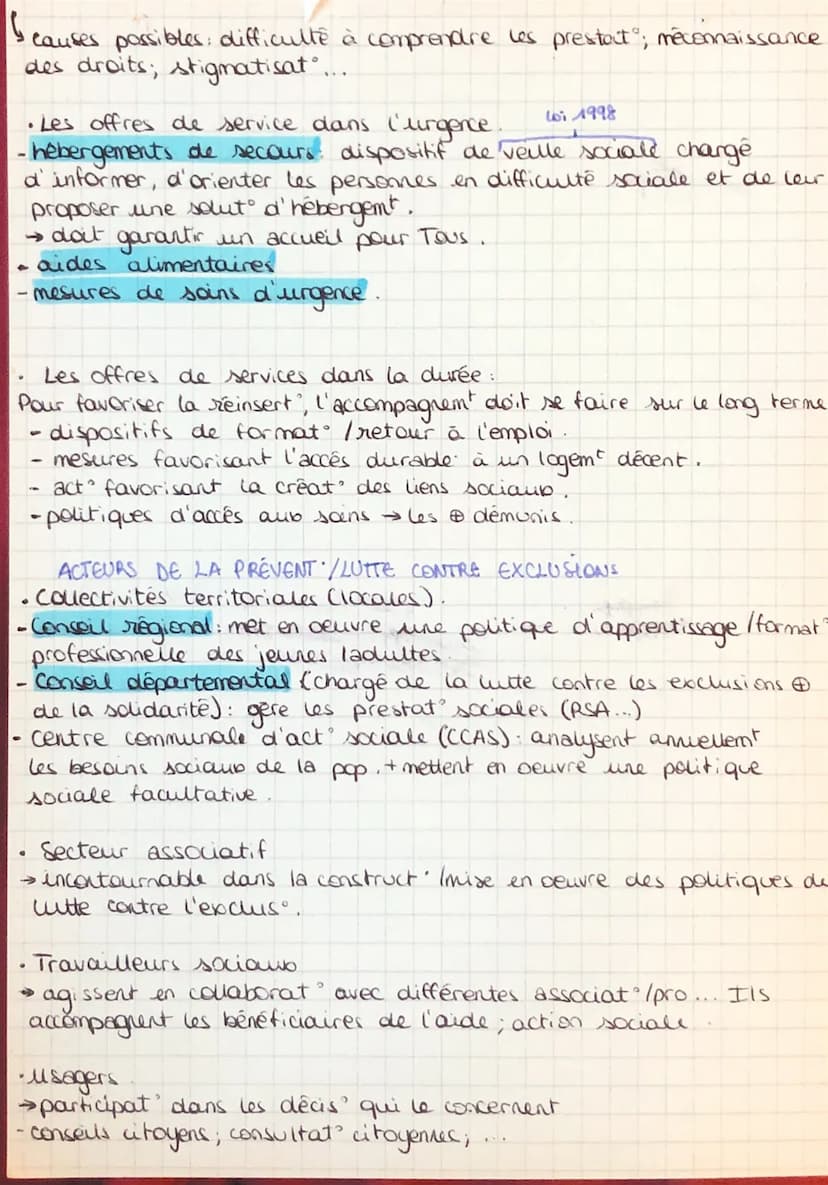 ↳ causes possibles : difficulté à comprendre les prestat° ; méconnaissance
des droits ; stigmatisat°...
• Les offres de service dans l'urgence.
loi 1998
- hébergements de secours : dispositif de veille sociale chargé
d'informer, d'orienter les personnes en difficulté sociale et de leur
proposer une solut° d'hébergemt.
→ doit garantir un accueil pour Tous.
- aides alimentaires
- mesures de soins d'urgence.
• Les offres de services dans la durée :
Pour favoriser la réinsert°, l'accompagnemt doit se faire sur le long terme
- dispositifs de format° / retour à l'emploi.
- mesures favorisant l'accès durable à un logemt décent.
- act° favorisant la créat° des liens sociaux.
- politiques d'accès aux soins → les ⊕ démunis.
ACTEURS DE LA PRÉVENT°/LUTTE CONTRE EXCLUSIONS
• Collectivités territoriales (locales).
- Conseil régional : met en oeuvre une politique d'apprentissage / format°
professionnelle des jeunes / adultes.
- Conseil départemental (chargé de la lutte contre les exclusions ⊕
de la solidarité) : gère les prestat° sociales (RSA...)
- Centre communale d'act° sociale (CCAS) : analysent annuellemt
les besoins sociaux de la pop. + mettent en oeuvre une politique
sociale facultative.
• Secteur associatif
→ incontournable dans la construct° / mise en oeuvre des politiques de
lutte contre l'exclus°.
• Travailleurs sociaux
→ agissent en collaborat° avec différentes associat°/pro... Ils
accompagnent les bénéficiaires de l'aide ; action sociale.
• Usagers
→ participat° dans les décis° qui le concernent
- conseils citoyens ; consultat° citoyennes ; ...